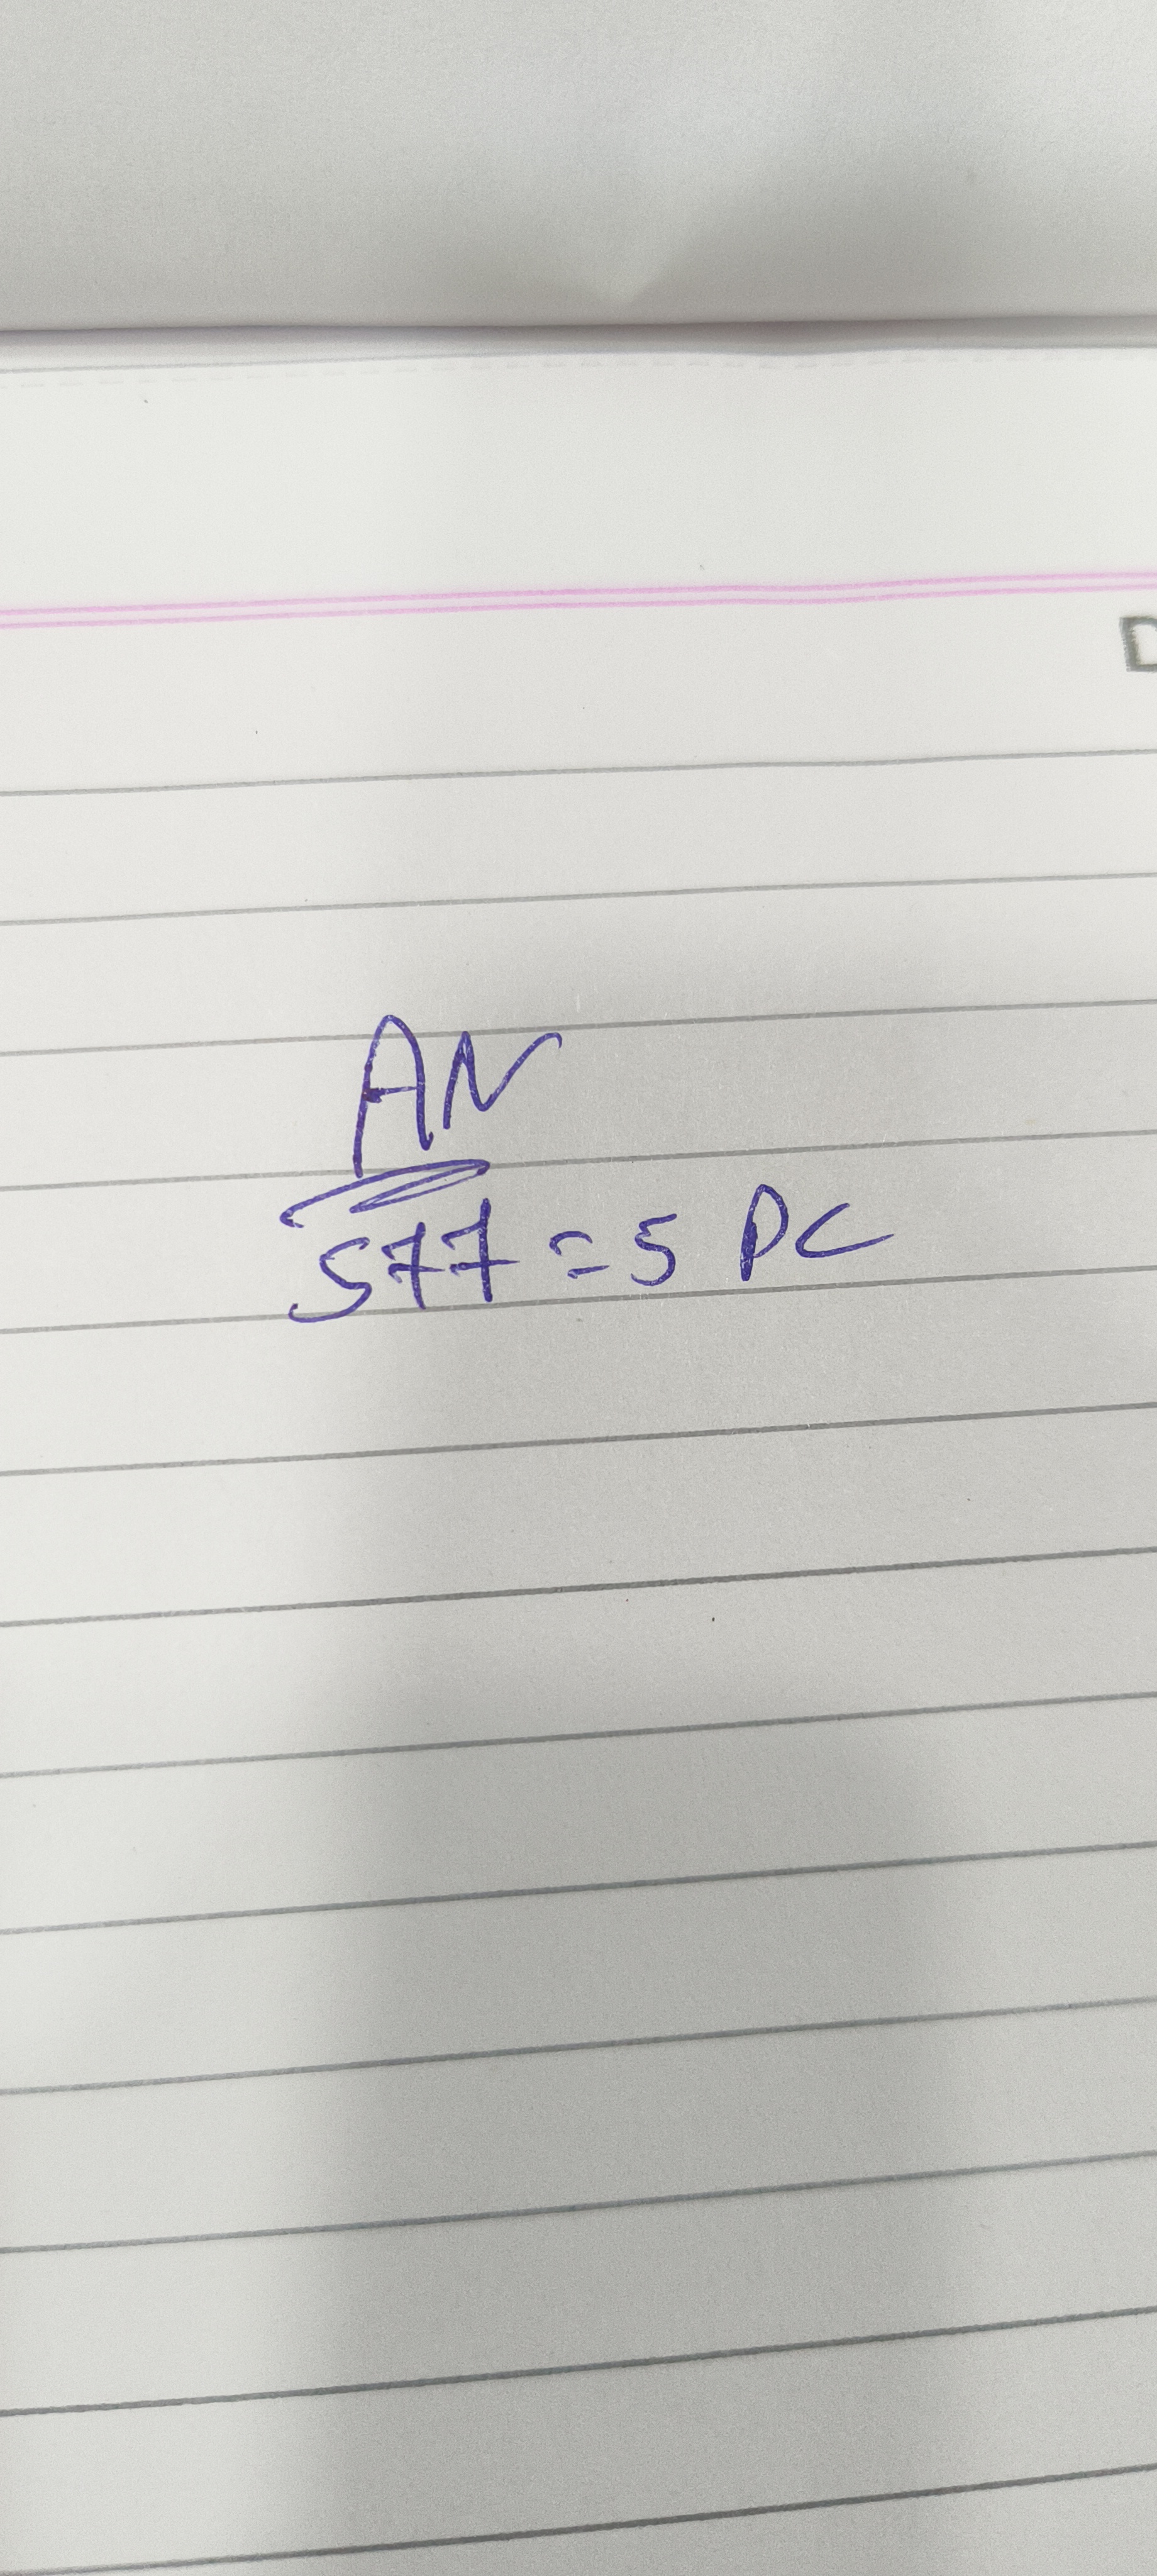 D
AN
577 = 5 PC